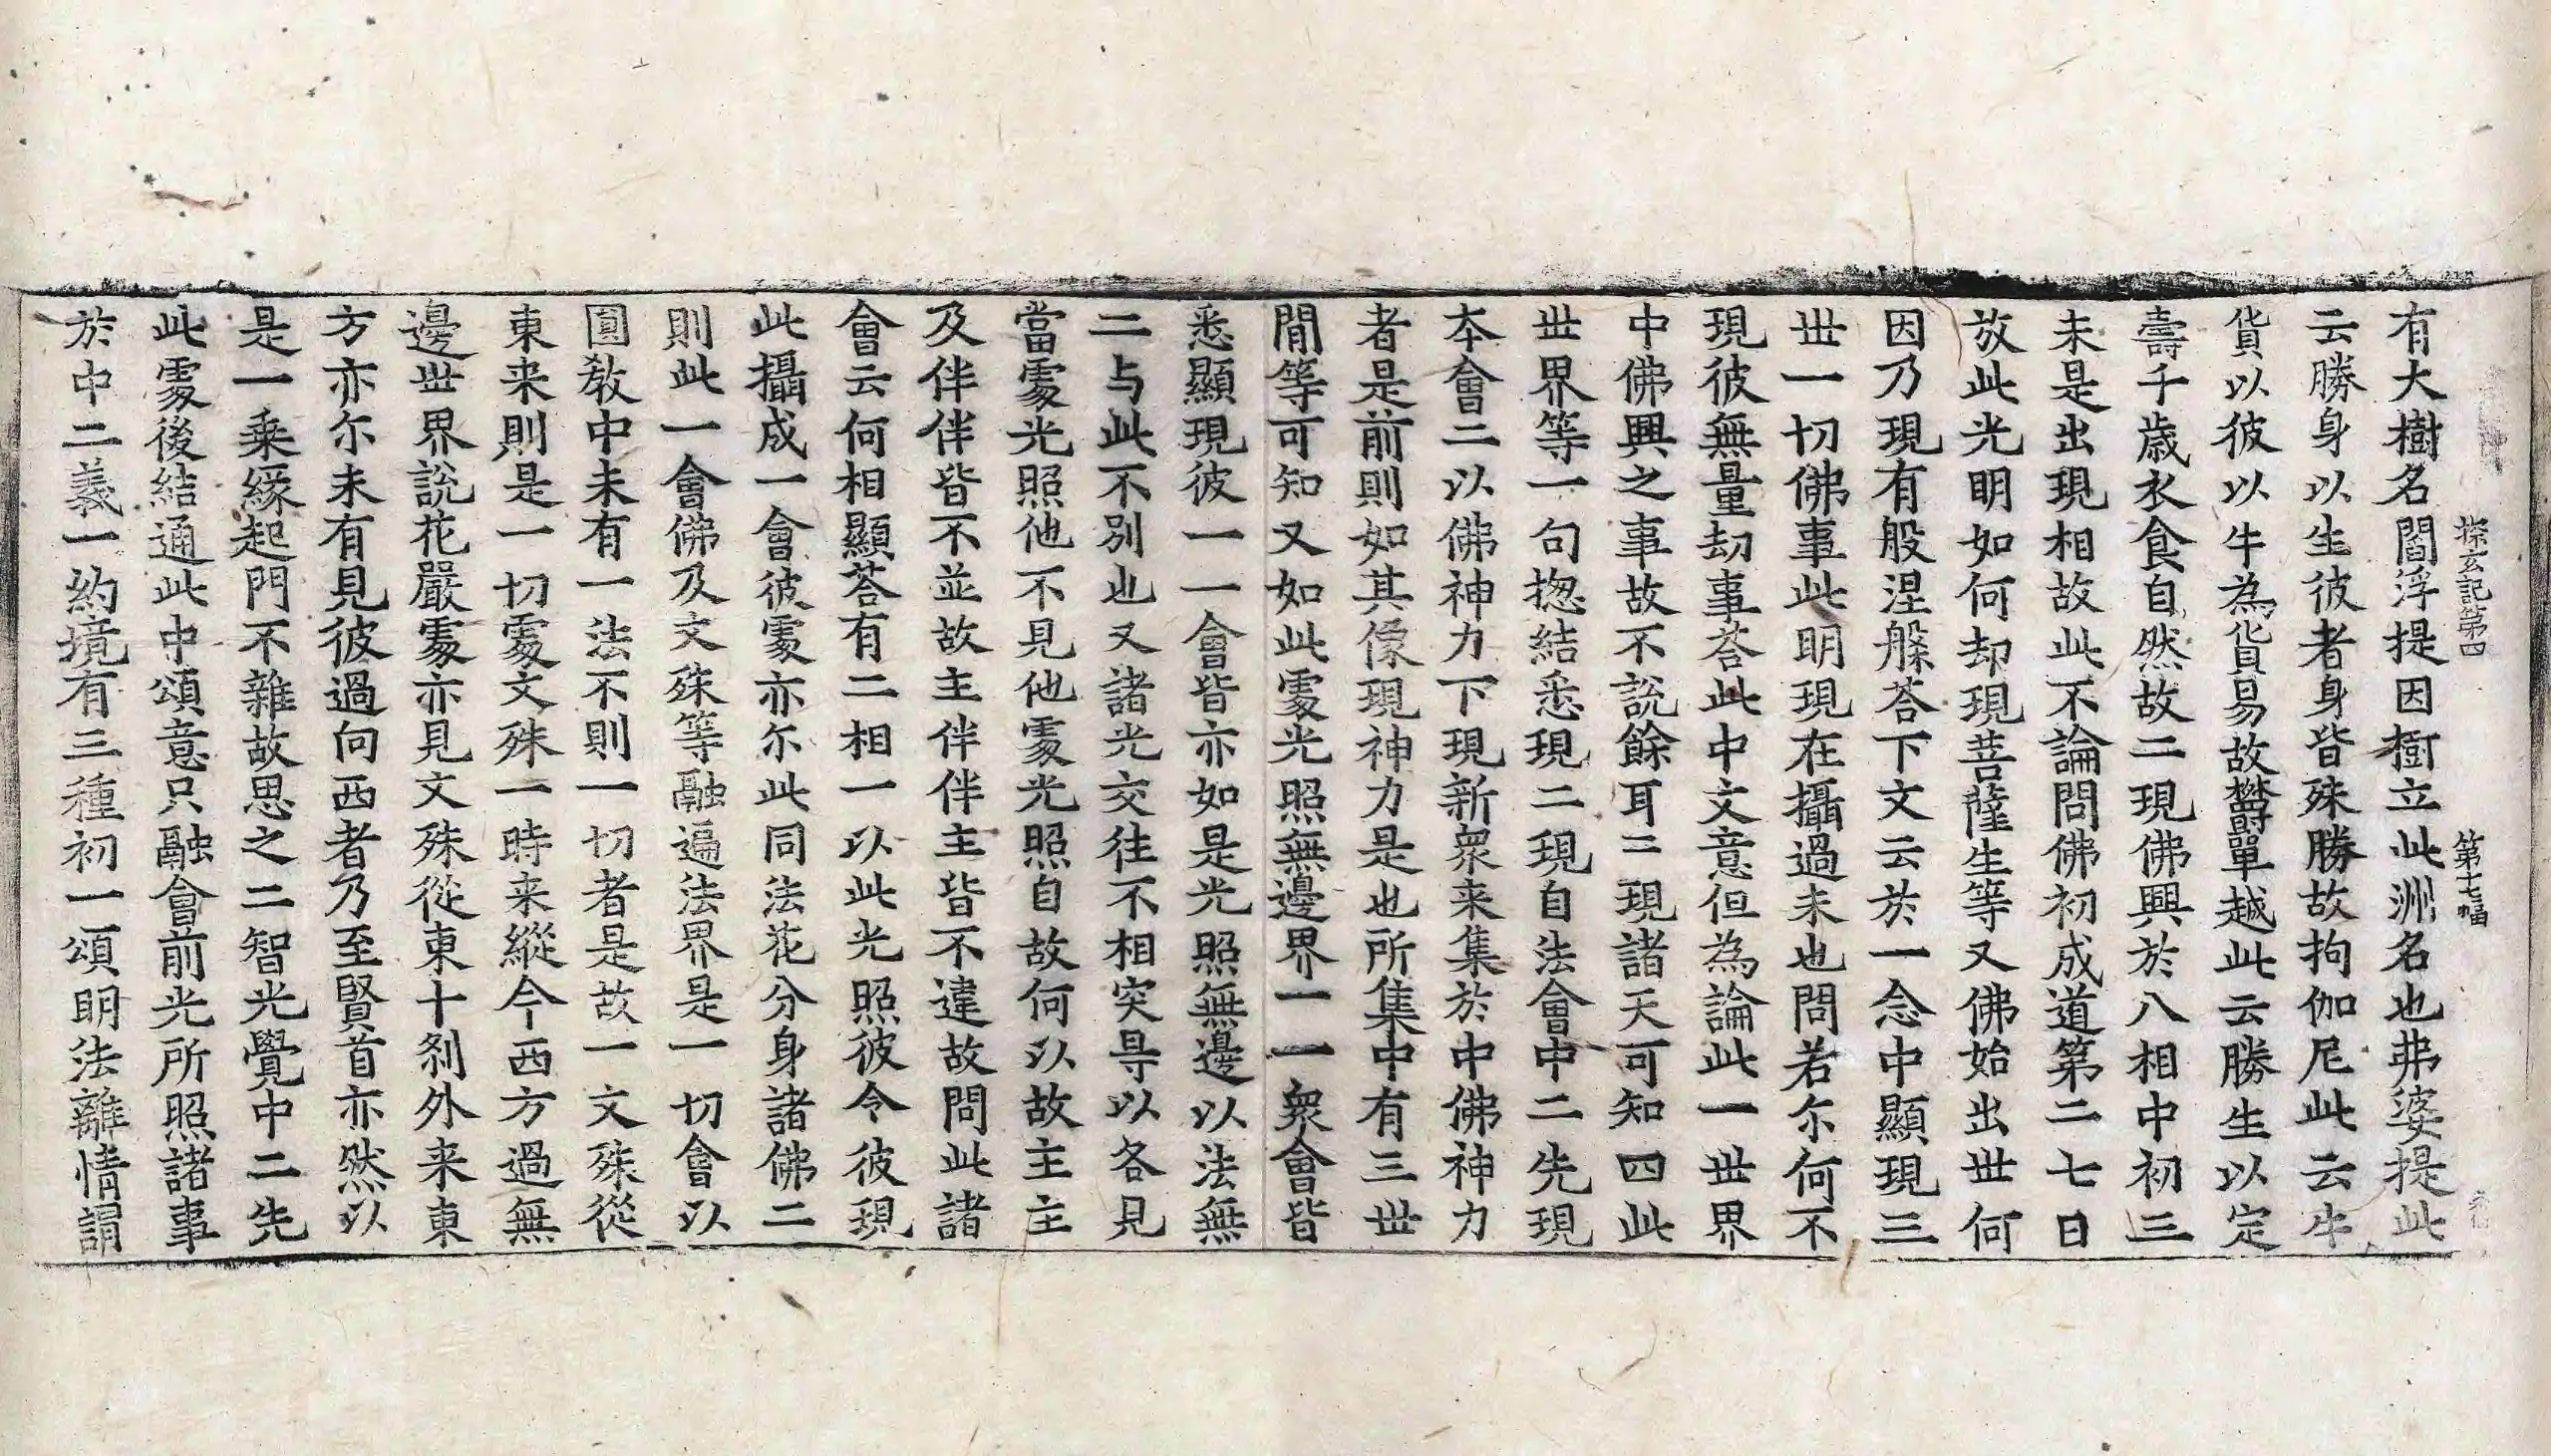 探玄記第四 第十七幅
有大樹名閻浮提因樹立此洲名也弗婆提此
云勝身以生彼者身皆殊勝故拘伽尼此云牛
貨以彼以牛為貨易故欝單越此云勝生以定
壽千歳衣食自然故二現佛興於八相中初三
未是出現相故此不論問佛初成道第二七日
放此光明如何却現菩薩生等又佛始出世何
因乃現有般涅槃荅下文云於一念中顯現三
世一切佛事此明現在攝過未也問若尓何不
現彼無量劫事荅此中文意但為論此一世界
中佛興之事故不說餘耳三現諸天可知四此
世界等一句揔結悉現二現自法會中二先現
本會二以佛神力下現新衆来集於中佛神力
者是前則如其像現神力是也所集中有三世
間等可知又如此處光照無邊界一一衆會皆
悉顯現彼一一會皆亦如是光照無邊以法無
二与此不別也又諸光交往不相突㝵以各見
當處光照他不見他處光照自故何以故主主
及伴伴皆不並故主伴伴主皆不違故問此諸
會云何相顯荅有二相一以此光照彼令彼現
此攝成一會彼處亦尓此同法花分身諸佛二
則此一會佛及文殊等融遍法界是一切會以
圓教中未有一法不則一切者是故一文殊從
東来則是一切處文殊一時来縱今西方過無
邊世界說花嚴處亦見文殊從東十刹外来東
方亦尓未有見彼過向西者乃至賢首亦然以
是一乗緣起門不雜故思之二智光覺中二先
此處後結通此中頌意只融會前光所照諸事
於中二義一約境有三種初一頌明法離情謂